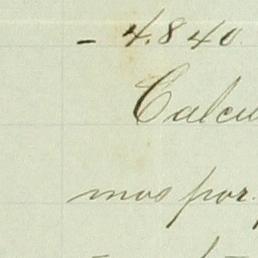 - 4.840.
Calcu
mos por